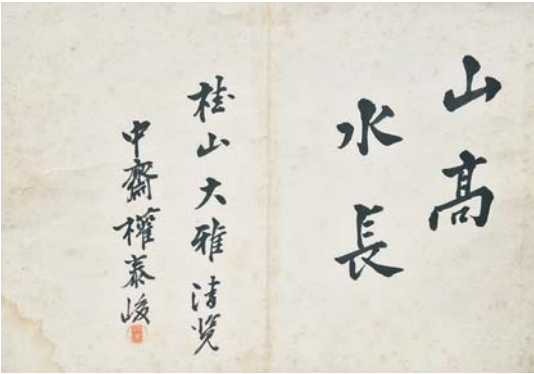 山高
水長
桂山大雅清覧
中齋權泰峻